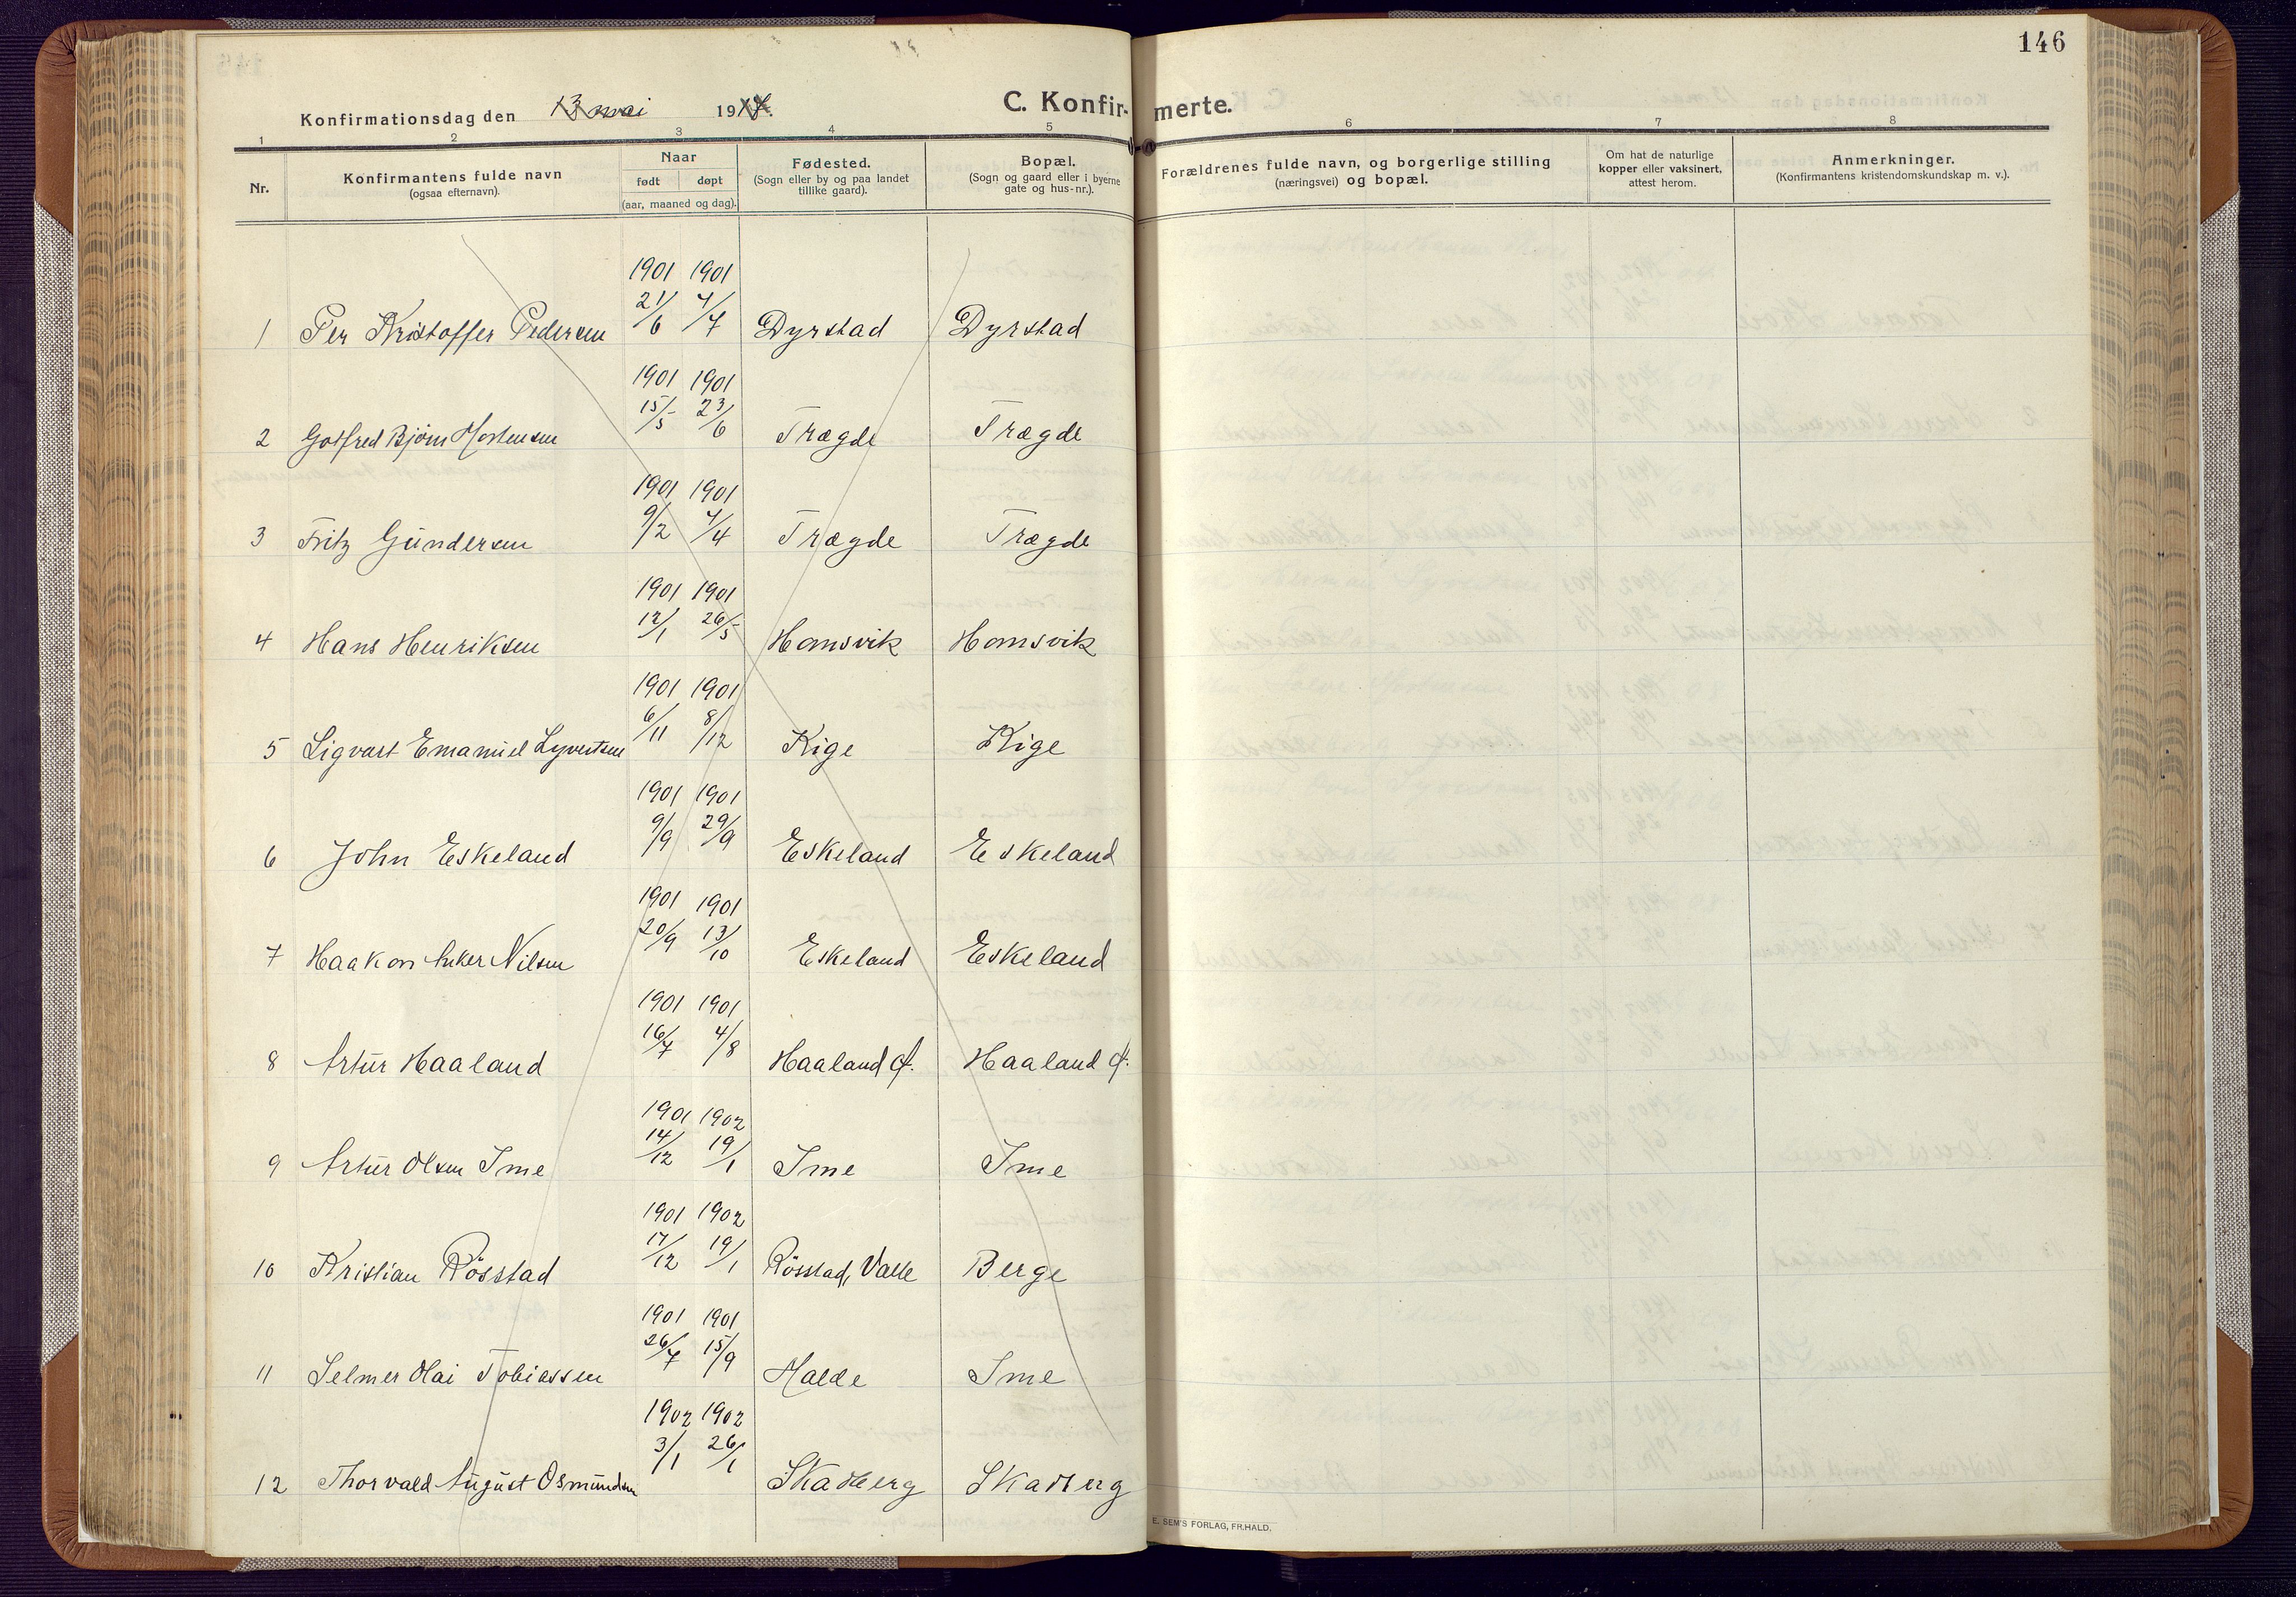 146
Konfirmationsdag den 13 mai 19
C. Konfirmerte.
1 2 3 4 5 6 7 8
Nr.
Konfirmantens fulde navn
(ogsaa efternavn).
Naar
født døpt
(aar, maaned og dag).
Fødested.
(Sogn eller by og paa landet
tillike gaard).
Bopæl.
(Sogn og gaard eller i byerne
gate og hus-nr.).
Forældrenes fulde navn, og borgerlige stilling
(næringsvei) og bopæl.
Om hat de naturlige
kopper eller vaksinert,
attest herom.
Anmerkninger.
(Konfirmantens kristendomskundskap m. v.).
1901 1901
1 Per Kristoffer Pedersen 21/6 7/7 Dyrstad Dyrstad
1901 1901
2 Gotfred Bjørn Mortensen 15/5 23/6 Trægde Trægde
1901 1901
3 Fritz Gundersen 9/2 7/4 Trægde Trægde
1901 1901
4 Hans Henriksen 12/1 26/5 Homsvik Homsvik
1901 1901
5 Sigvart Emanuel Syvertsen 6/11 8/12 Kige Kige
1901 1901
6 John Eskeland 9/9 29/9 Eskeland Eskeland
1901 1901
7 Haakon Anker Nilsen 20/9 13/10 Eskeland Eskeland
1901 1901
8 Artur Haaland 16/7 4/8 Haaland Haaland
1901 1902
9 Artur Olsen Ime 14/12 19/1 Ime Ime
1901 1902
10 Kristian Røsstad 17/12 19/1 Røsstad, Valle Berge
1901 1901
11 Selmer Olai Tobiassen 26/7 15/9 Halde Ime
1902 1902
12 Thorvald August Osmundsen 3/1 26/1 Skadberg Skadberg
E. SEM'S FORLAG, FR.HALD.